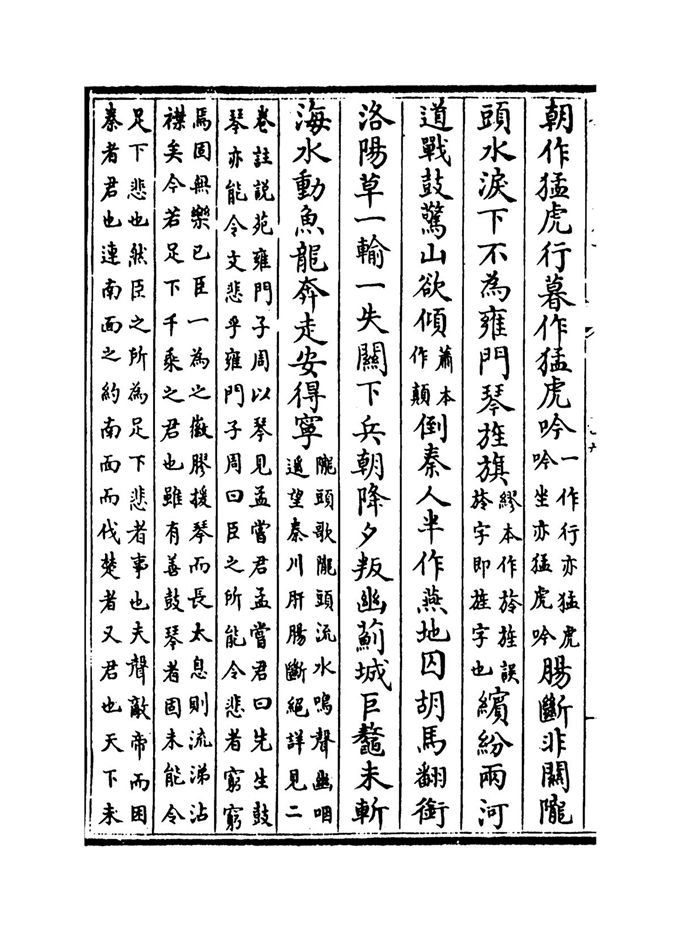 朝作猛虎行暮作猛虎吟一作行亦猛虎吟坐亦猛虎吟腸斷非關隴
頭水淚下不為雍門琴旌旗繆本作旍旌誤旍字即旌字也繽紛兩河
道戰鼓驚山欲傾蕭本作顛倒秦人半作燕地囚胡馬翻銜
洛陽草一輸一失關下兵朝降夕叛幽薊城巨鼇未斬
海水動魚龍奔走安得寧隴頭歌隴頭流水鳴聲幽咽遥望秦川肝腸斷絕詳見二
卷註説苑雍門子周以琴見孟嘗君孟嘗君曰先生鼓
琴亦能令文悲乎雍門子周曰臣之所能令悲者窮窮
焉固無樂已臣一為之徽膠援琴而長太息則流涕沾
襟矣今若足下千乘之君也雖有善鼓琴者固未能令
足下悲也然臣之所為足下悲者事也夫聲敵帝而困
秦者君也連南面之約南面而伐楚者又君也天下未